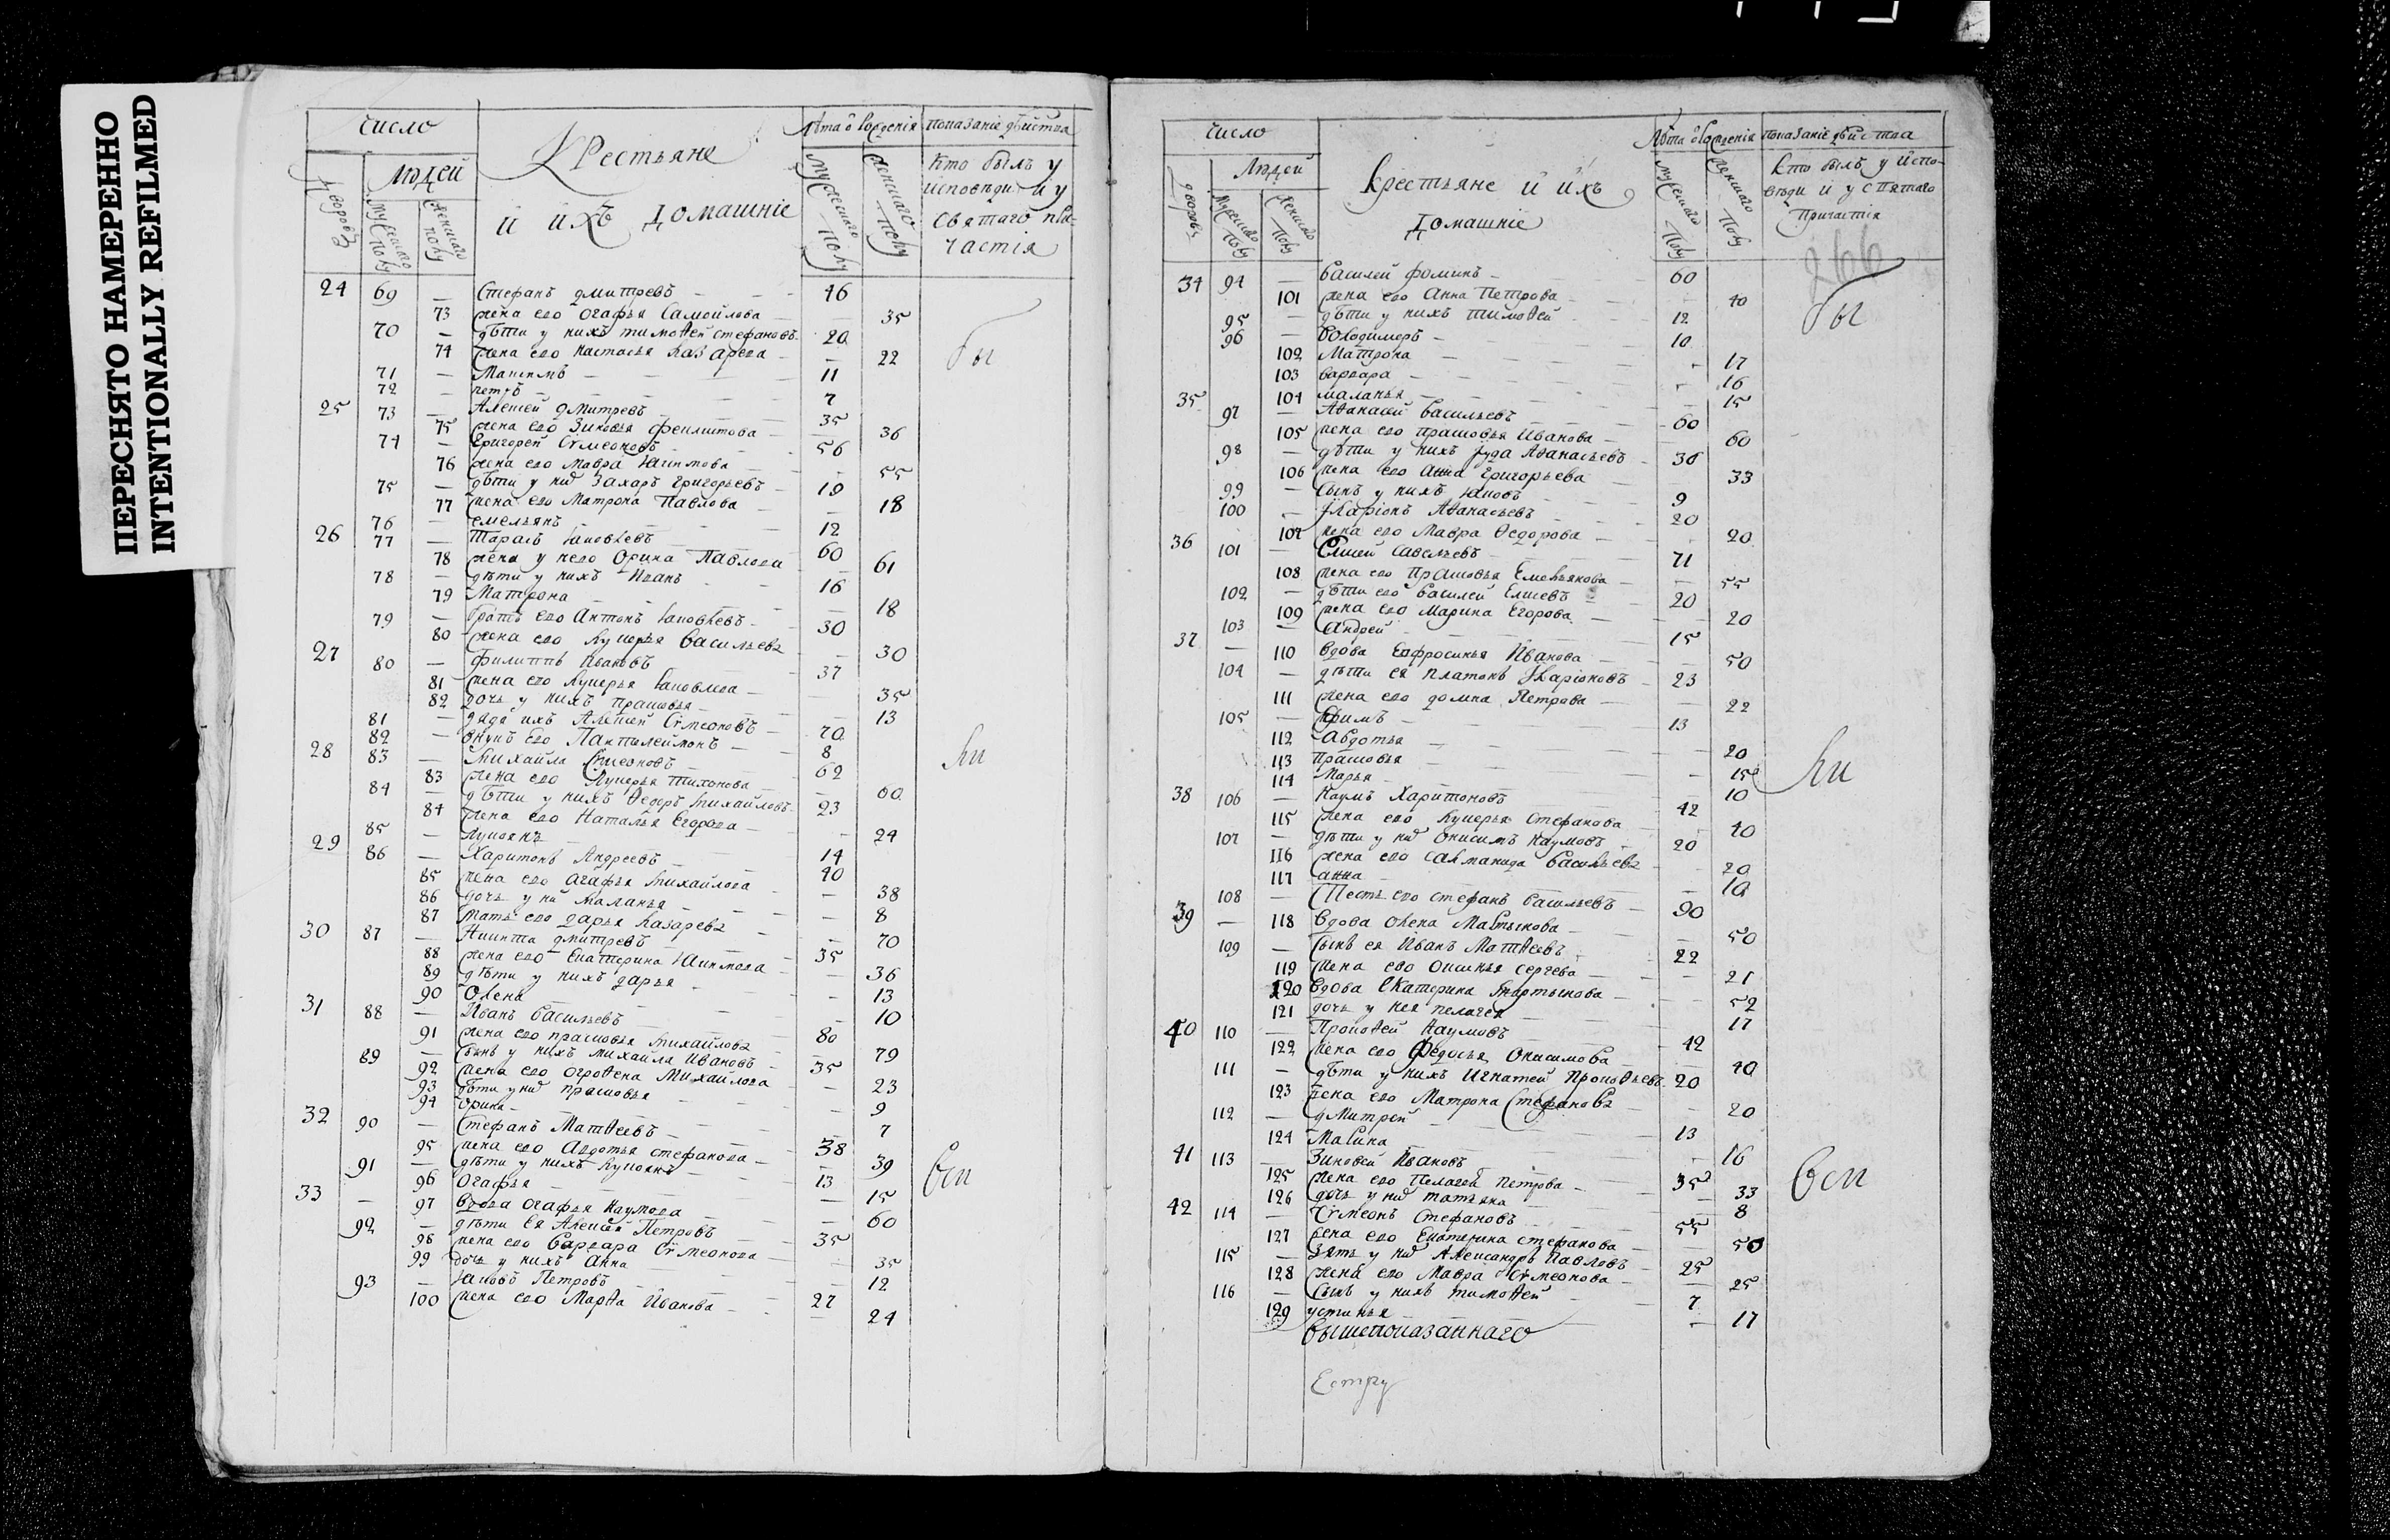 ПЕРЕСНЯТО НАМЕРЕННО
INTENTIONALLY REFILMED
число
Людей
Дворовъ
мужескаго полу
женскаго полу
Крестьяне
и ихъ домашніе
Лѣта ѿ рожденія
мужескаго полу
женскаго полу
показаніе дѣйства
Кто былъ у
исповѣди и у
святаго при-
частія
24 69 — Стефанъ Дмитревъ — 46
73 жена его Огафья Самойлова — 35
70 — дѣти у нихъ Тимоѳей Стефановъ 20
74 жена его Настасья Лазарева — 22
бы
71 — Максимъ — 11
72 — петръ — 7
25 73 — Алексей Дмитревъ — 35
75 жена его Зиновья Феклистова — 36
74 — Григорей Сѵмеоновъ — 56
76 жена его Мавра Якимова — 55
75 — дѣти у них Захаръ Григорьевъ — 19
77 жена его Матрона Павлова — 18
76 — емельянъ — 12
26 77 — Тарасъ Яковлевъ — 60
78 жена у него Орина Павлова — 61
78 — дѣти у нихъ Иванъ — 16
79 Матрона — 18
79 — братъ его Антонъ Яковлевъ — 30
80 жена его Лукерья Васильева — 30
27 80 — Филиппъ Ивановъ — 37
81 жена его Лукерья Яковлева — 35
82 дочь у нихъ прасковья — 13
81 — дядя ихъ Алексей Сѵмеоновъ — 70
82 — внукъ Его Пантилеймонъ — 8
28 83 — Михайла Сѵмеоновъ — 62
83 жена его Лукерья Тихонова — 60
84 — дѣти у нихъ Ѳедоръ Михайловъ 23
84 жена его Наталья Егорова — 24
ли
85 — Лукоянъ — 14
29 86 — Харитонъ Андреевъ — 40
85 жена его Агафья Михайлова — 38
86 дочь у ни Маланья — 8
87 мать его Дарья Лазарева — 70
30 87 — Никита Дмитревъ — 35
88 жена его Екатерина Якимова — 36
89 дѣти у нихъ Дарья — 13
90 Олена — 10
31 88 — Иванъ Васильевъ — 80
91 жена его прасковья Михайлова — 79
89 — Сынъ у нихъ Михайла Ивановъ — 35
92 жена его Огроѳена Михайлова — 23
93 дѣти у них прасковья — 9
94 Орина — 7
32 90 — Стефанъ Матѳеевъ — 38
95 жена его Авдотья Стефанова — 39
91 — дѣти у нихъ Лукоянъ — 13
96 Огафья — 15
вси
33 — 97 Вдова Огафья Наумова — 60
92 — дѣти Ея Алексей Петровъ — 35
98 жена его Варвара Сѵмеонова — 35
99 дочь у нихъ Анна — 12
93 — Яковъ Петровъ — 27
100 жена его Марѳа Иванова — 24
число
Людей
дворовъ
мужескаго полу
женскаго полу
Крестьяне и ихъ
домашніе
Лѣта ѿ рожденія
мужескаго полу
женскаго полу
показаніе дѣйства
Кто былъ у испо-
вѣди и у святаго
причастія
266
34 94 — Василей Фоминъ — 60
101 жена его Анна Петрова — 40
95 — дѣти у нихъ Тимоѳей — 12
бы
96 — Володимеръ — 10
102 Матрона — 17
103 варвара — 16
104 маланья — 15
35 97 — Аѳанасей Васильевъ — 60
105 жена его прасковья Иванова — 60
98 — дѣти у нихъ Іуда Аѳанасьевъ — 36
106 жена его Анна Григорьева — 33
99 — Сынъ у нихъ Яковъ — 9
100 — Іларіонъ Аѳанасьевъ — 20
107 жена его Мавра Ѳедорова — 20
36 101 — Елисей Савельевъ — 71
108 жена его прасковья Емельянова — 55
102 — дѣти его Василей Елисеевъ — 20
109 жена его Марина Егорова — 20
103 — Андрей — 15
37 — 110 вдова Ефросинья Иванова — 50
104 — дѣти ея Платонъ Іларіоновъ — 23
111 жена его домна Петрова — 22
105 — Ефимъ — 13
112 Авдотья — 20
113 прасковья — 15
114 Марья — 10
ли
38 106 — Наумъ Харитоновъ — 42
115 жена его Лукерья Стефанова — 40
107 — дѣти у них Онисимъ Наумовъ — 20
116 жена его Саломанида Васильева — 20
117 анна — 10
108 — Тесть его Стефанъ Васильевъ — 90
39 — 118 вдова Олена Мартынова — 50
109 — Сынъ ея Иванъ Матѳеевъ — 22
119 жена его Оксинья Сергева — 21
120 Вдова Екатерина Мартынова — 52
121 дочь у нея пелагея — 17
40 110 — Прокоѳей Наумовъ — 42
122 жена его Федосья Онисимова — 40
111 — дѣти у нихъ Игнатей Прокоѳьевъ 20
123 жена его Матрона Стефанова — 20
112 — Дмитрей — 13
124 Марина — 16
41 113 — Зиновей Ивановъ — 35
125 жена его Пелагея Петрова — 33
126 дочь у них татьяна — 8
вси
42 114 — Сѵмеонъ Стефановъ — 55
127 жена его Екатерина Стефанова — 50
115 — Зять у них Александръ Павловъ — 25
128 жена его Мавра Сѵмеонова — 25
116 — Сынъ у нихъ Тимоѳей — 7
129 устинья — 17
вышепоказаннаго